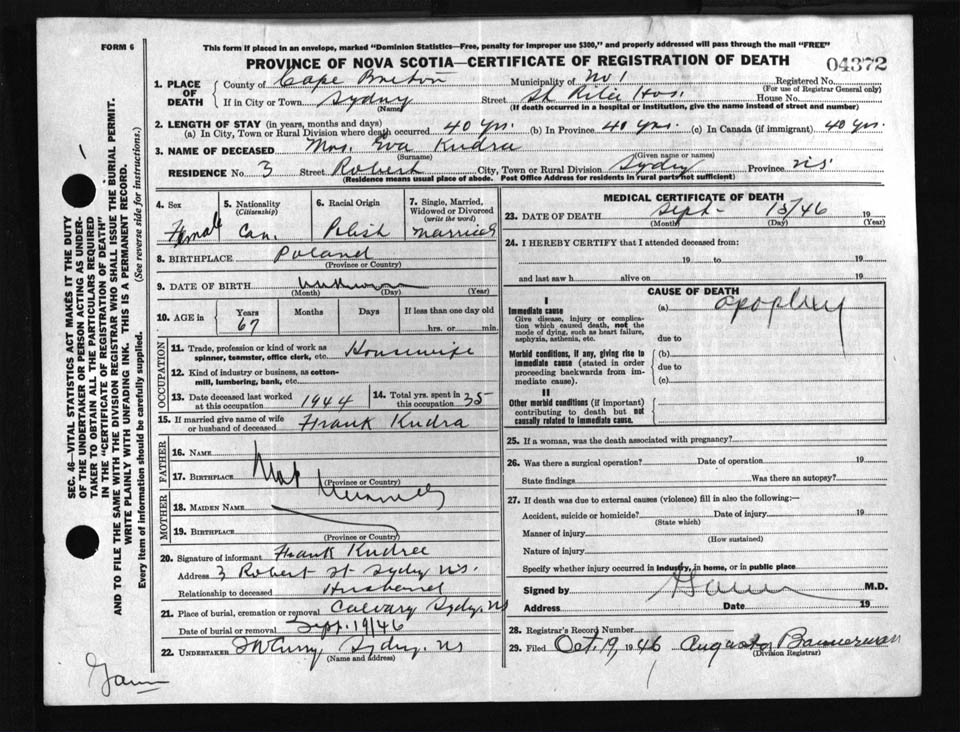 FORM 6
This form if placed in an envelope, marked "Dominion Statistics—Free, penalty for improper use $300," and properly addressed will pass through the mail "FREE"
PROVINCE OF NOVA SCOTIA—CERTIFICATE OF REGISTRATION OF DEATH 04372
1. PLACE OF DEATH County of Cape Breton Municipality of No 1 Registered No.
(For use of Registrar General only)
If in City or Town Sydney Street St Rita Hos. House No.
(Name) (If death occurred in a hospital or institution, give the name instead of street and number)
2. LENGTH OF STAY (in years, months and days)
(a) In City, Town or Rural Division where death occurred 40 yrs. (b) In Province 40 yrs. (c) In Canada (if immigrant) 40 yrs.
3. NAME OF DECEASED Mrs. Eva Kudra
(Surname) (Given name or names)
RESIDENCE No. 3 Street Robert City, Town or Rural Division Sydney Province NS
(Residence means usual place of abode. Post Office Address for residents in rural parts not sufficient)
4. Sex Female
5. Nationality (Citizenship) Can.
6. Racial Origin Polish
7. Single, Married, Widowed or Divorced (write the word) Married
8. BIRTHPLACE Poland
(Province or Country)
9. DATE OF BIRTH unknown
(Month) (Day) (Year)
10. AGE in Years 67 Months Days If less than one day old hrs. or min.
OCCUPATION
11. Trade, profession or kind of work as spinner, teamster, office clerk, etc. Housewife
12. Kind of industry or business, as cotton-mill, lumbering, bank, etc.
13. Date deceased last worked at this occupation 1944 14. Total yrs. spent in this occupation 35
15. If married give name of wife or husband of deceased Frank Kudra
FATHER
16. NAME
17. BIRTHPLACE
(Province or Country)
MOTHER
18. MAIDEN NAME
19. BIRTHPLACE
(Province or Country)
20. Signature of informant Frank Kudra
Address 3 Robert St Sydney NS.
Relationship to deceased Husband
21. Place of burial, cremation or removal Calvary Sydney, NS
Date of burial or removal Sept. 19/46
22. UNDERTAKER Sydney. NS
(Name and address)
MEDICAL CERTIFICATE OF DEATH
23. DATE OF DEATH Sept- 15/46 19
(Month) (Day) (Year)
24. I HEREBY CERTIFY that I attended deceased from:
19 to 19
and last saw h alive on 19
CAUSE OF DEATH
I
Immediate cause (a) apoplexy
Give disease, injury or complication which caused death, not the mode of dying, such as heart failure, asphyxia, asthenia, etc.
due to
Morbid conditions, if any, giving rise to immediate cause (stated in order proceeding backwards from immediate cause).
(b)
due to
(c)
II
Other morbid conditions (if important) contributing to death but not causally related to immediate cause.
25. If a woman, was the death associated with pregnancy?
26. Was there a surgical operation? Date of operation 19
State findings Was there an autopsy?
27. If death was due to external causes (violence) fill in also the following:—
Accident, suicide or homicide? Date of injury 19
(State which)
Manner of injury
(How sustained)
Nature of injury
Specify whether injury occurred in industry, in home, or in public place
Signed by M.D.
Address Date 19
28. Registrar's Record Number
29. Filed Oct. 19, 1946 Augusta Bannerman
(Division Registrar)
SEC. 46—VITAL STATISTICS ACT MAKES IT THE DUTY
OF THE UNDERTAKER OR PERSON ACTING AS UNDER-
TAKER TO OBTAIN ALL THE PARTICULARS REQUIRED
IN THE "CERTIFICATE OF REGISTRATION OF DEATH"
AND TO FILE THE SAME WITH THE DIVISION REGISTRAR WHO SHALL ISSUE THE BURIAL PERMIT.
WRITE PLAINLY WITH UNFADING INK. THIS IS A PERMANENT RECORD.
Every item of information should be carefully supplied. (See reverse side for instructions.)